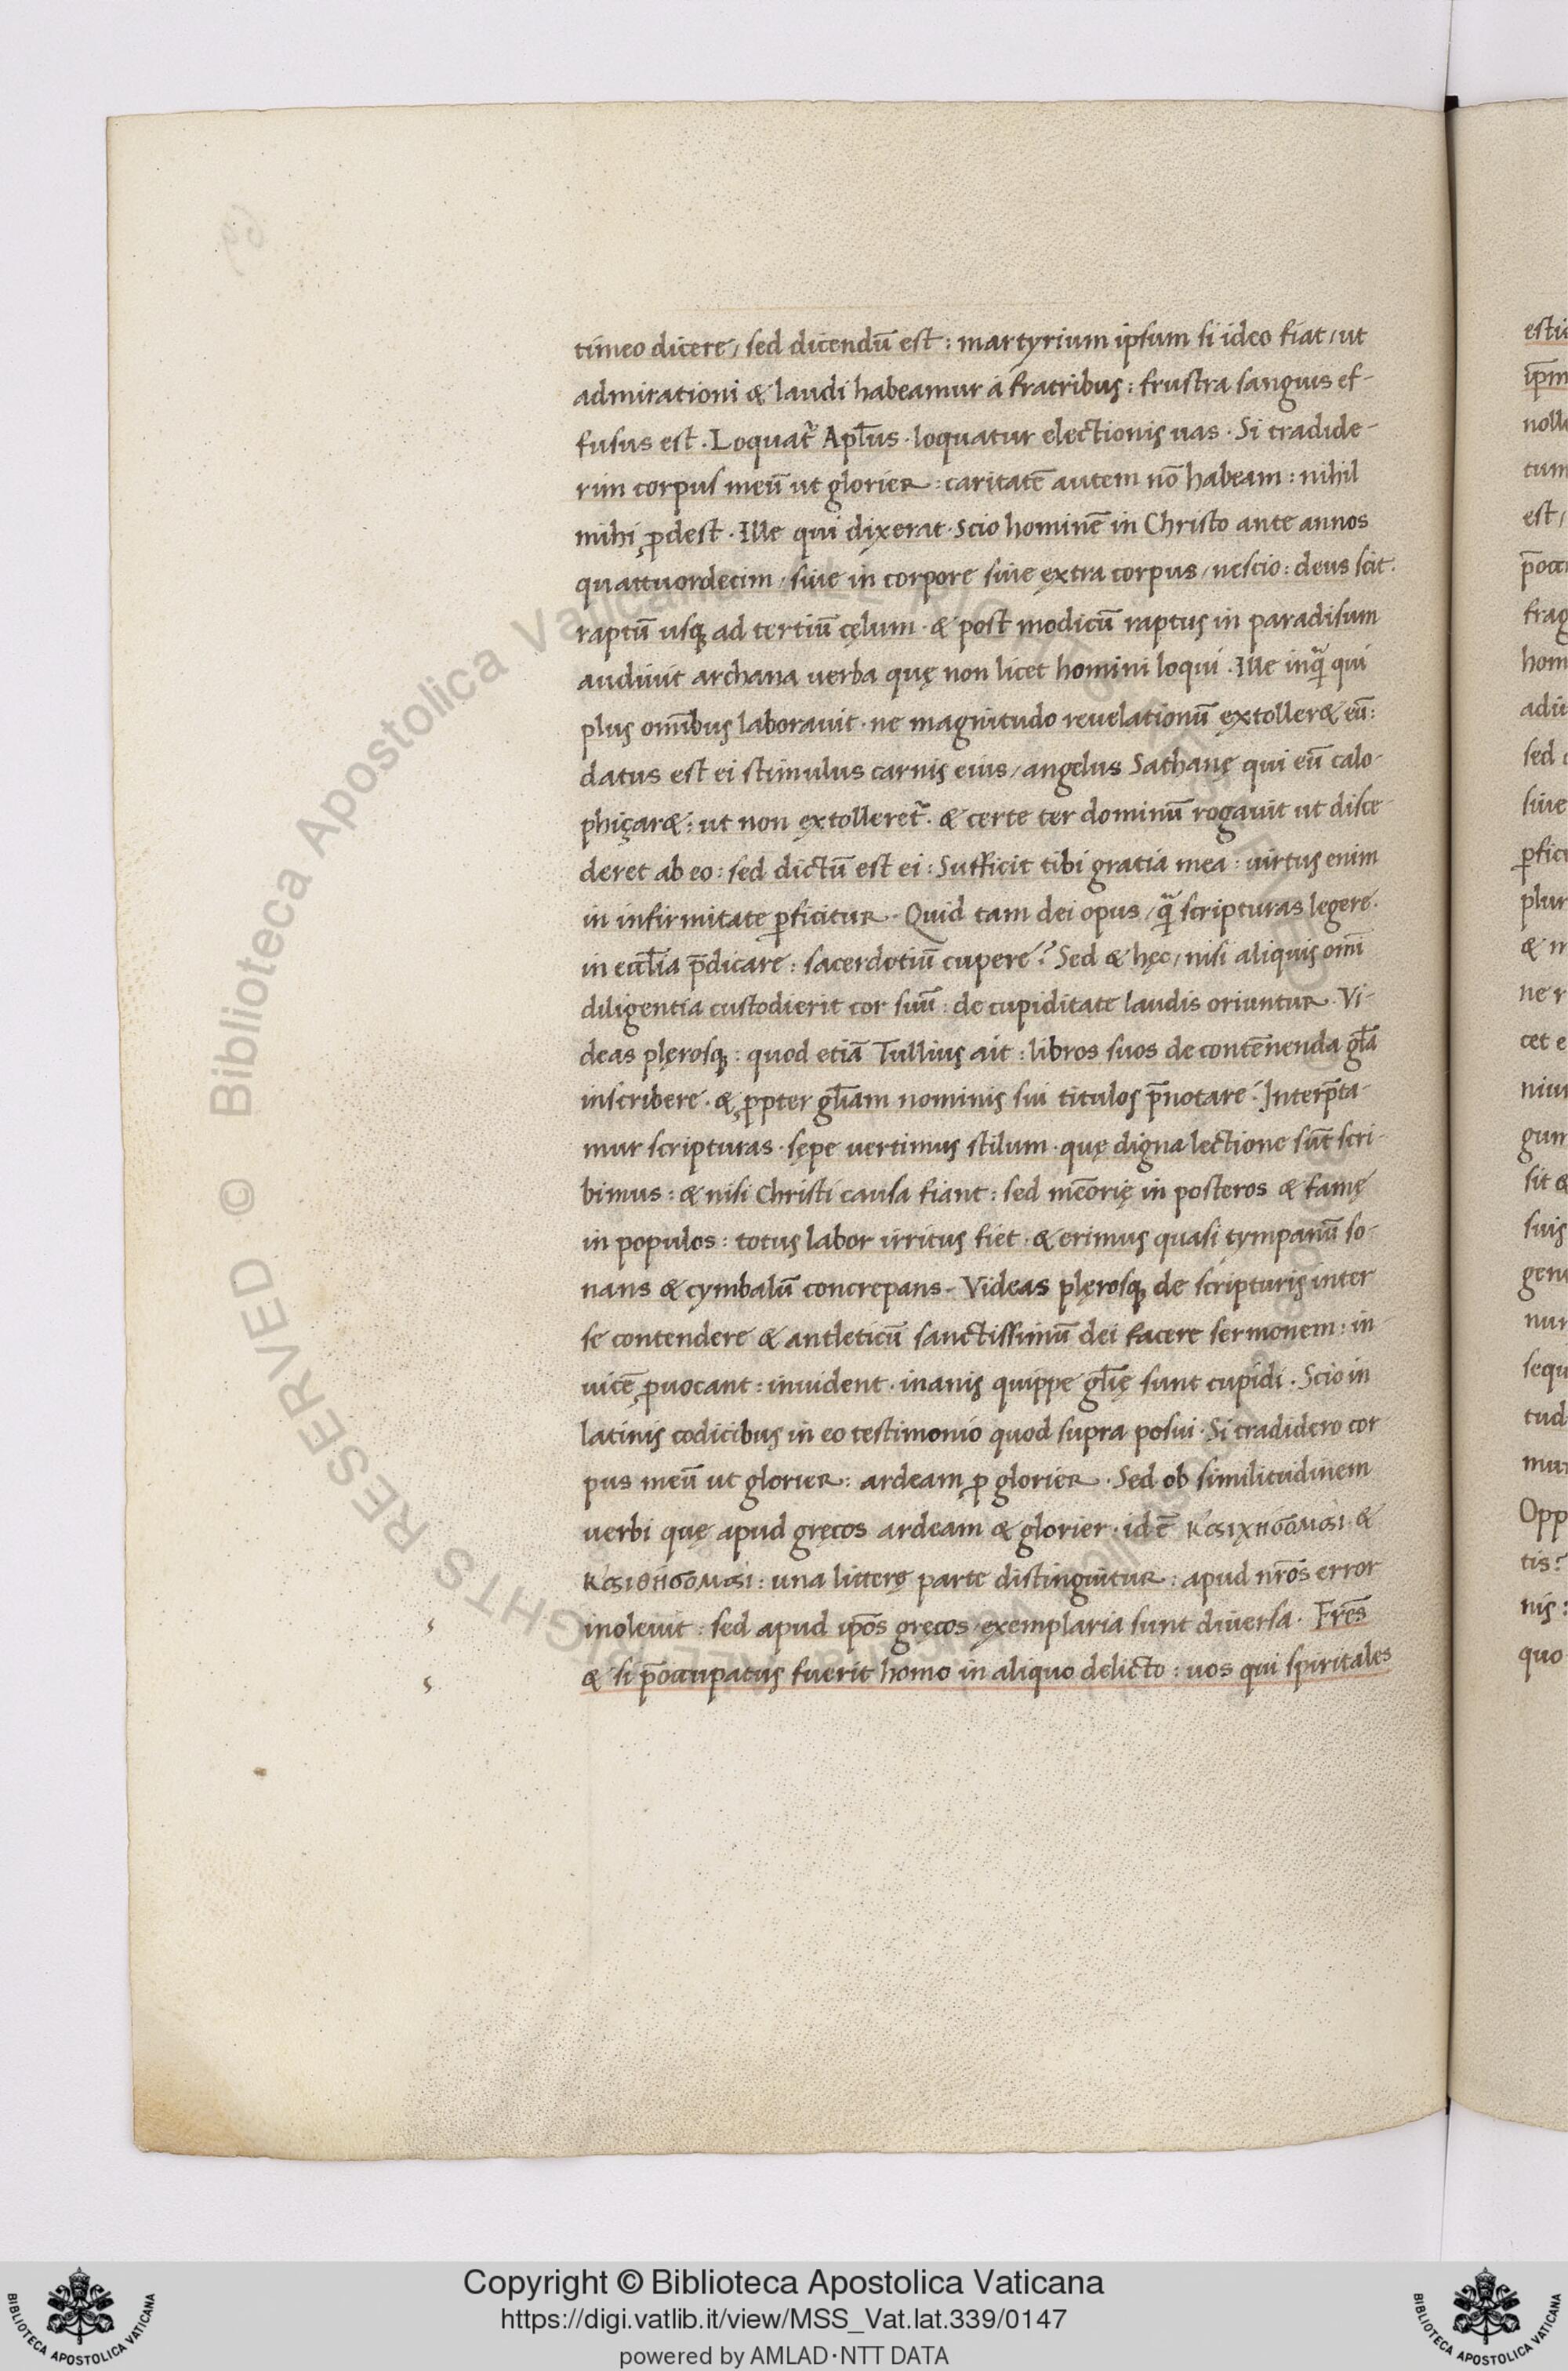 timeo dicere, sed dicendū est: martyrium ipsum si ideo fiat, ut
admirationi & laudi habeamur á fratribus: frustra sanguis ef-
fusus est. Loquat᷑ Apl̄us. loquatur electionis uas. Si tradide-
rim corpus meū ut glorier: caritatē autem nō habeam: nihil
mihi ꝓdest. Ille qui dixerat. Scio hominē in Christo ante annos
quattuordecim, siue in corpore siue extra corpus, nescio: deus scit.
raptū usq; ad tertiū cęlum. & post modicū raptus in paradisum
audiuit archana uerba quę non licet homini loqui. Ille inq̄ qui
plus omībus laborauit. ne magnitudo reuelationū extoller& eū:
datus est ei stimulus carnis eius, angelus Sathanę qui eū calo-
phiçar&: ut non extolleret᷑. & certe ter dominū rogauit ut disce-
deret ab eo: sed dictū est ei: Sufficit tibi gratia mea: uirtus enim
in infirmitate ꝑficitur. Quid tam dei opus, q̄ scripturas legere.
in eccl̄ia p̄dicare: sacerdotiū cupere? Sed & hęc, nisi aliquis omī
diligentia custodierit cor suū: de cupiditate laudis oriuntur. Vi-
deas plęrosq;: quod etiā Tullius ait: libros suos de contēnenda gl̄a
inscribere. & ꝓpter gl̄iam nominis sui titulos p̄notare. Interp̄ta-
mur scripturas. sępe uertimus stilum. quę digna lectione sūt scri-
bimus: & nisi Christi causa fiant: sed mēorię in posteros & famę
in populos: totus labor irritus fiet. & erimus quasi tympanū so-
nans & cymbalū concrepans. Videas plęrosq; de scripturis inter
se contendere & antleticū sanctissimū dei facere sermonem: in
uicē ꝓuocant: inuident. inanis quippe gl̄ię sunt cupidi. Scio in
latinis codicibus in eo testimonio quod supra posui. Si tradidero cor
pus meū ut glorier: ardeam ꝓ glorier. Sed ob similitudinem
uerbi quę apud gręcos ardeam & glorier. id ē καιχησομαι &
καιθησομαι: una litterę parte distinguitur: apud nr̄os error
inoleuit: sed apud ip̄os gręcos exemplaria sunt diuersa. Fr̄es
& si p̄occupatus fuerit homo in aliquo delicto: uos qui spiritales
estis
ip̄m
est,
hom
sed
siue
plur
ne r
cet e
sit &
suis
Opp
tis?
nis:
quo
© Biblioteca Apostolica Vaticana
RIGHTS RESERVED
BIBLIOTECA APOSTOLICA VATICANA
Copyright © Biblioteca Apostolica Vaticana
https://digi.vatlib.it/view/MSS_Vat.lat.339/0147
powered by AMLAD·NTT DATA
BIBLIOTECA APOSTOLICA VATICANA